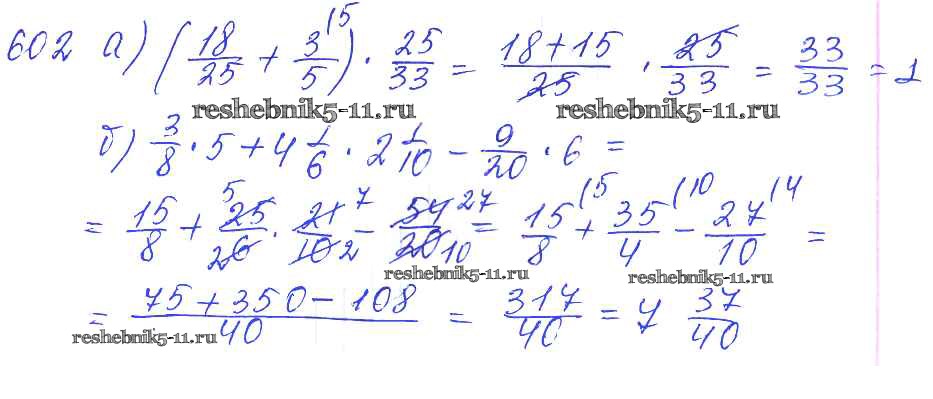 602 а) (18/25 + 3/5 (5) · 25/33 = 18+15/25 · 25/33 = 33/33 = 1
reshebnik5-11.ru reshebnik5-11.ru
б) 3/8 · 5 + 4 1/6 · 2 1/10 − 9/20 · 6 =
= 15/8 + 25 5/6 2 · 21 7/10 2 − 54 27/20 10 = 15/8 (5 + 35/4 (10 − 27/10 (4 =
reshebnik5-11.ru reshebnik5-11.ru
= 75+350−108/40 = 317/40 = 7 37/40
reshebnik5-11.ru